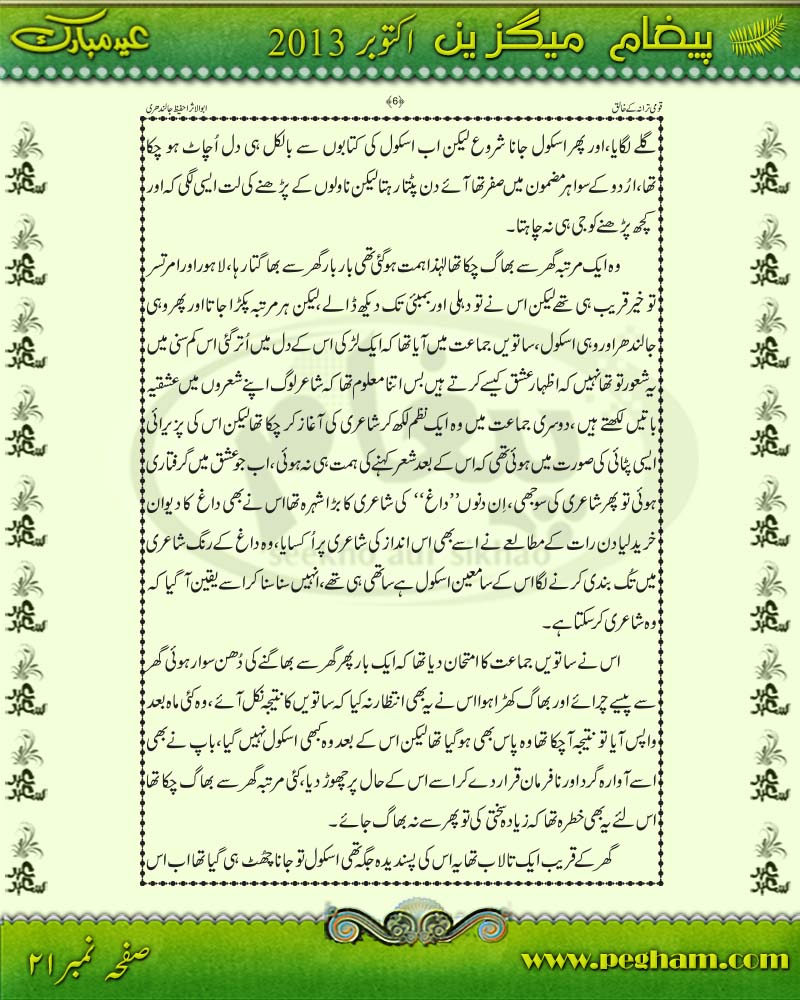 پیغام میگزین اکتوبر 2013
عید مبارک
قومی ترانہ کے خالق
﴿6﴾
ابوالاثر حفیظ جالندھری
گلے لگایا،اور پھر اسکول جانا شروع لیکن اب اسکول کی کتابوں سے بالکل ہی دل اُچاٹ ہو چکا
تھا،ارُدو کے سوا ہر مضمون میں صفر تھا آئے دن پٹتا رہتا لیکن ناولوں کے پڑھنے کی لت ایسی لگی کہ اور
کچھ پڑھنے کو جی ہی نہ چاہتا۔
وہ ایک مرتبہ گھر سے بھاگ چکا تھا لہٰذا ہمت ہو گئی تھی بار بار گھر سے بھاگتا رہا، لاہور اور امرتسر
تو خیر قریب ہی تھے لیکن اس نے تو دہلی اور بمبئی تک دیکھ ڈالے،لیکن ہر مرتبہ پکڑا جاتا اور پھر وہی
جالندھر اور وہی اسکول، ساتویں جماعت میں آیا تھا کہ ایک لڑکی اس کے دل میں اُتر گئی اس کم سنی میں
یہ شعور تو تھا نہیں کہ اظہار عشق کیسے کرتے ہیں بس اتنا معلوم تھا کہ شاعر لوگ اپنے شعروں میں عشقیہ
باتیں لکھتے ہیں، دوسری جماعت میں وہ ایک نظم لکھ کر شاعری کی آغاز کر چکا تھا لیکن اس کی پزیرائی
ایسی پٹائی کی صورت میں ہوئی تھی کہ اس کے بعد شعر کہنے کی ہمت ہی نہ ہوئی، اب جو عشق میں گرفتاری
ہوئی تو پھر شاعری کی سوجھی، اِن دنوں ’’داغ‘‘ کی شاعری کا بڑا شہرہ تھا اس نے بھی داغ کا دیوان
خرید لیا دن رات کے مطالعے نے اسے بھی اس انداز کی شاعری پر اُکسایا، وہ داغ کے رنگ شاعری
میں تُک بندی کرنے لگا اس کے سامعین اسکول ہے ساتھی ہی تھے، انہیں سنا سنا کر اسے یقین آ گیا کہ
وہ شاعری کر سکتا ہے۔
اس نے ساتویں جماعت کا امتحان دیا تھا کہ ایک بار پھر گھر سے بھاگنے کی دُھن سوار ہوئی گھر
سے پیسے چرائے اور بھاگ کھڑا ہوا اس نے یہ بھی انتظار نہ کیا کہ ساتویں کا نتیجہ نکل آئے، وہ کئی ماہ بعد
واپس آیا تو نتیجہ آ چکا تھا وہ پاس بھی ہو گیا تھا لیکن اس کے بعد وہ کبھی اسکول نہیں گیا، باپ نے بھی
اسے آوارہ گرد اور نافرمان قرار دے کر اسے اس کے حال پر چھوڑ دیا، کئی مرتبہ گھر سے بھاگ چکا تھا
اس لئے یہ بھی خطرہ تھا کہ زیادہ سختی کی تو پھر سے نہ بھاگ جائے۔
گھر کے قریب ایک تالاب تھا یہ اس کی پسندیدہ جگہ تھی اسکول تو جانا چھٹ ہی گیا تھا اب اس
پیغام
seekho aur sikhao
صفحہ نمبر ۲۱
www.pegham.com